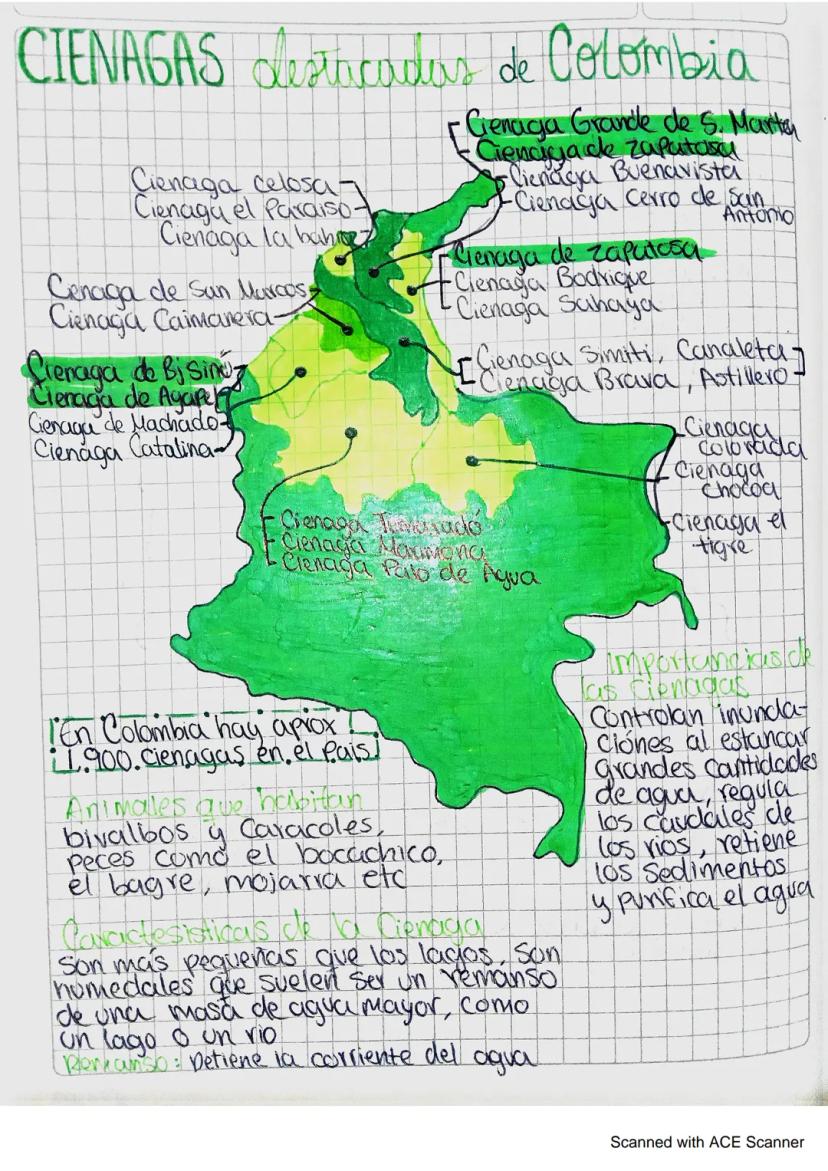 CIENAGAS destacadas de Colombia
Cienaga Grande de S. Marta
Cienaga de Zapatosa
Cienaga Buenavista
Cienaga Cerro de San
Antonio
Cienaga celosa
Cienaga el Paraiso
Cienaga la bahia
Cienaga de Zapatosa
Cienaga Bodrique
Cienaga Sahaya
Cenaga de San Marcos
Cienaga Caimanera
Cienaga Simiti, Canaleta
Cienaga Brava, Astillero
Cienaga de Bj Sinú
Cienaga de Agape
Cienaga de Machado
Cienaga Catalina
Cienaga
Colorada
Cienaga
Chocoa
Cienaga el
tigre
Cienaga Tumaradó
Cienaga Marimona
Cienaga Palo de Agua
Importancias de
las Cienagas
Controlan inunda-
ciónes al estancar
grandes cantidades
de agua, regula
los caudales de
los rios, retiene
los sedimentos
y purifica el agua
En Colombia hay aprox
1.900 cienagas en el Pais
Animales que habitan
bivalbos y Caracoles,
peces como el bocachico,
el bagre, mojarra etc
Caractesisticas de la Cienaga
Son más pequeñas que los lagos. Son
humedales que suelen ser un remanso
de una masa de agua mayor, como
un lago o un rio
Remanso: Detiene la corriente del agua
Scanned with ACE Scanner